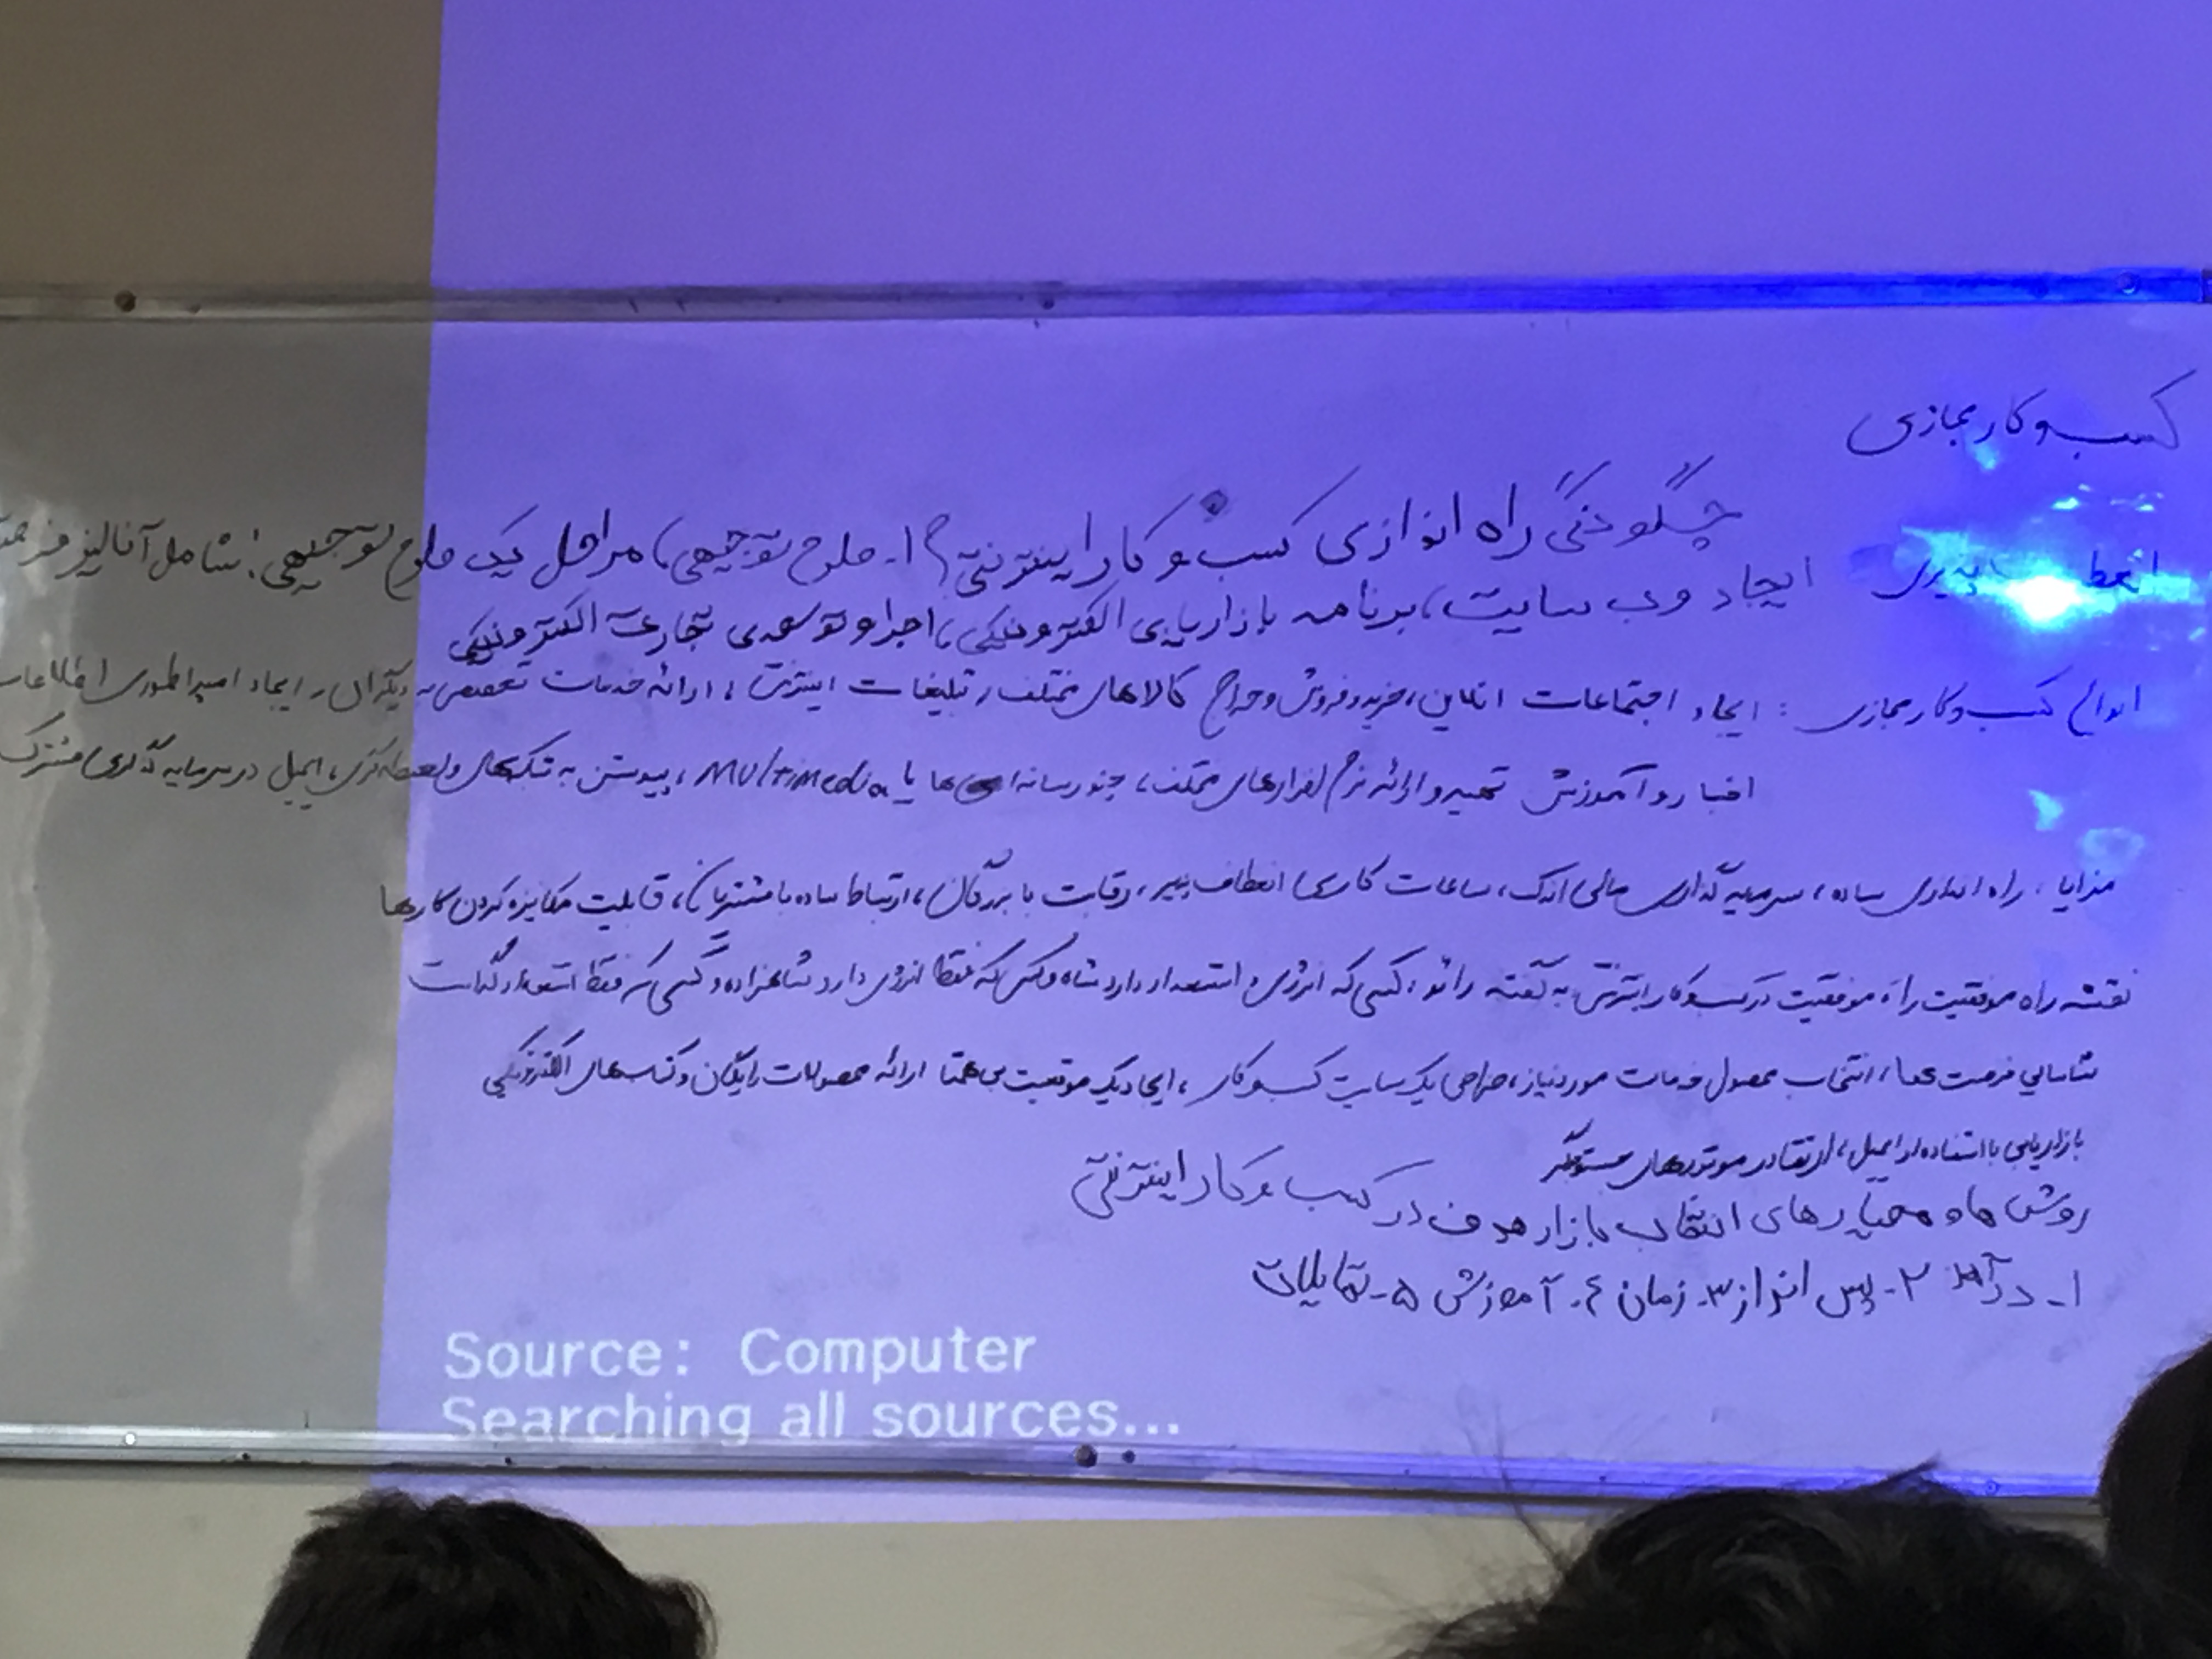 کسب و کار مجازی
چگونگی راه اندازی کسب و کار اینترنتی؟ ۱- طرح توجیهی) مراحل یک طرح توجیهی: شامل آنالیز
ایجاد وب سایت، برنامه بازاریابی الکترونیکی، اجرا و توسعه ی تجارت الکترونیکی
انواع کسب و کار مجازی: ایجاد اجتماعات آنلاین، خرید و فروش و حراج کالاهای مختلف، تبلیغات اینترنتی، ارائه خدمات تخصصی به دیگران، ایجاد امپراطوری اطلاعات
اخبار و آموزش تهیه و ارائه نرم افزارهای مختلف، چند رسانه ای ها یا Multimedia، پیوستن به شبکه‌های، ایمیل در سرمایه گذاری مشترک
مزایا: راه اندازی ساده، سرمایه گذاری مالی اندک، ساعات کاری انعطاف پذیر، رقابت با بزرگان، ارتباط ساده با مشتریان، قابلیت مکانیزه کردن کارها
نقشه راه موفقیت را، موفقیت در کسب و کار اینترنتی به گفته، کسی که انرژی و استعداد دارد شاه و کسی که فقط انرژی دارد شاهزاده و کسی که فقط استعداد
شناسایی فرصت ها، انتخاب محصول خدمات مورد نیاز، طراحی یک سایت کسب و کار، ایجاد یک موقعیت بی همتا ارائه محصولات رایگان و کتاب های الکترونیکی
بازاریابی با استفاده از ایمیل، ارتقا در موتورهای جستوجگر
روش ها و معیارهای انتخاب بازار هدف در کسب و کار اینترنتی
۱- درآمد ۲- پس انداز ۳- زمان ۴- آموزش ۵- تمایلات
Source: Computer
Searching all sources...